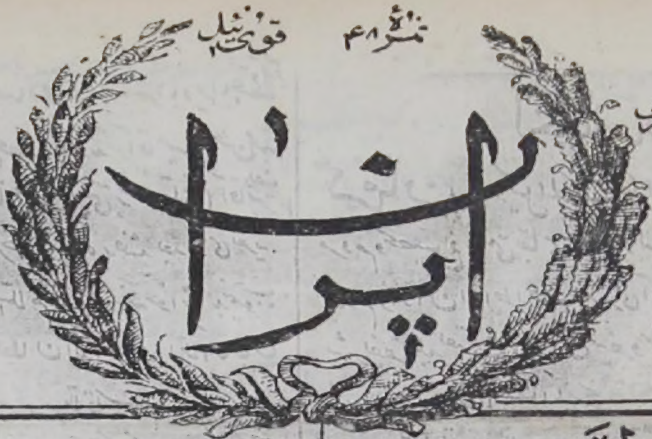 نمرهٔ ۴۸ قوی ئیل
ایران